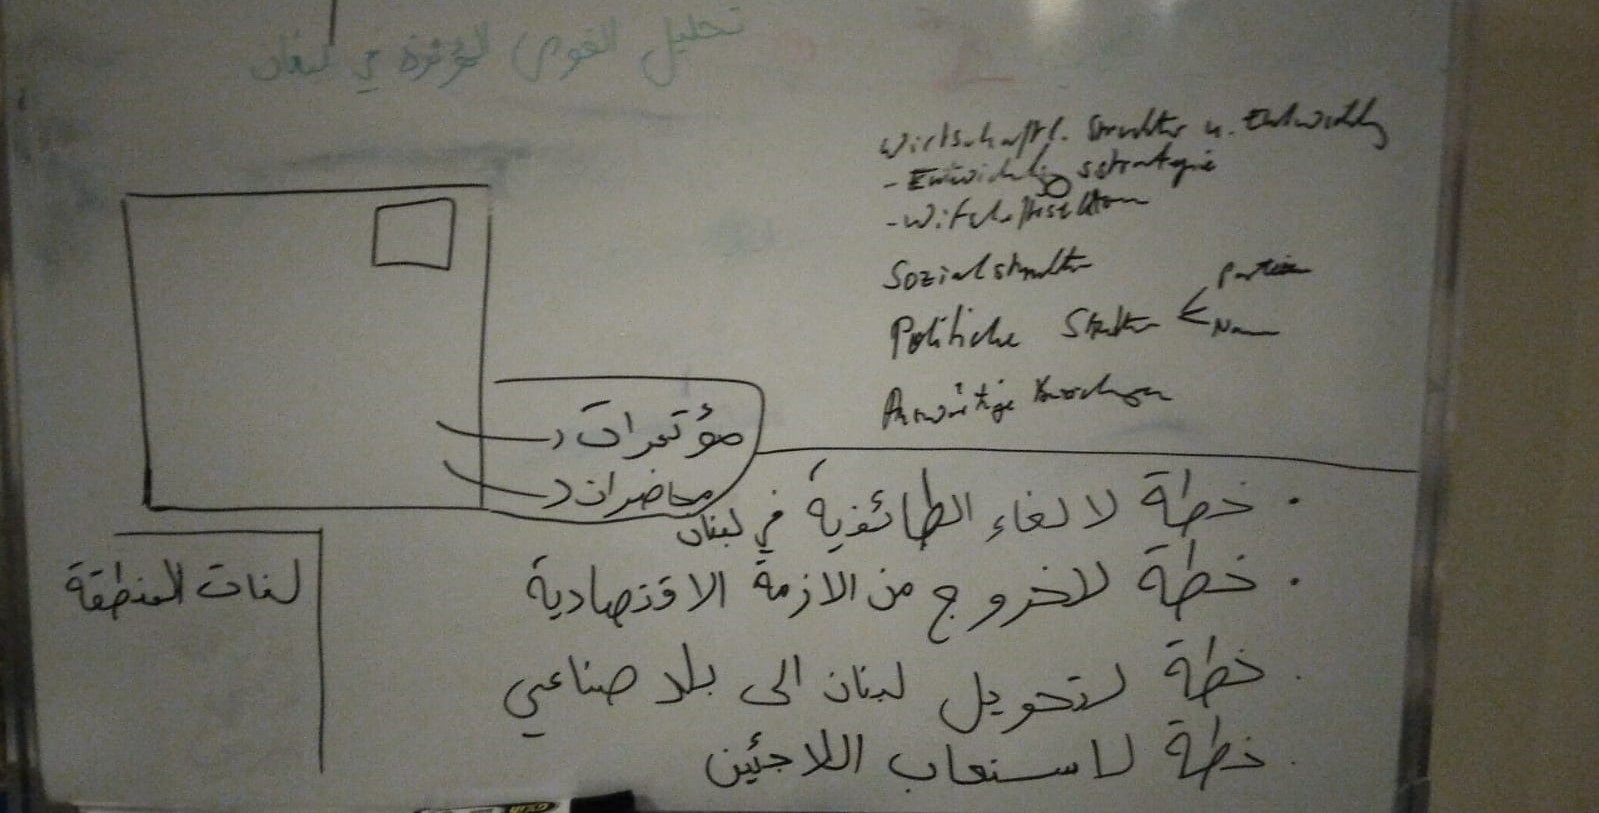 تحليل القوى المؤثرة في لبنان
Wirtschaftl. Struktur u. Entwicklg
- Entwicklgsstrategie
- Wirtschaftssektoren
Sozialstruktur
Parteien
Politische Struktur
Auswärtige
مؤتمرات
محاضرات
• خطة لالغاء الطائفية في لبنان
• خطة للخروج من الازمة الاقتصادية
. خطة لتحويل لبنان الى بلد صناعي
. خطة لاستعاب اللاجئين
لغات المنطقة